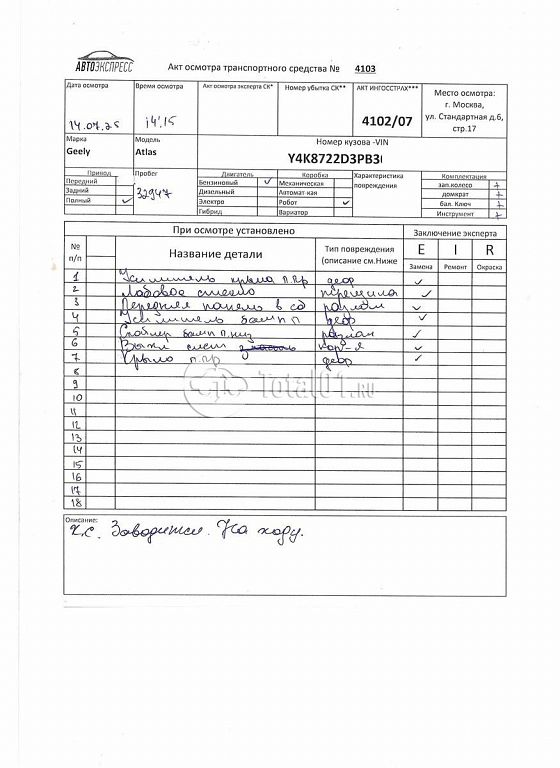 АВТОЭКСПРЕСС
Акт осмотра транспортного средства № 4103
Дата осмотра
14.07.25
Время осмотра
14:15
Акт осмотра эксперта СК*
Номер убытка СК**
АКТ ИНГОССТРАХ***
4102/07
Место осмотра:
г. Москва,
ул. Стандартная д.6,
стр.17
Марка
Geely
Модель
Atlas
Номер кузова -VIN
Y4K8722D3PB3
Привод
Передний
Задний
Полный ✓
Пробег
32947
Двигатель
Бензиновый ✓
Дизельный
Электро
Гибрид
Коробка
Механическая
Автомат-кая
Робот ✓
Вариатор
Характеристика
повреждения
Комплектация
зап.колесо +
домкрат +
бал. Ключ +
Инструмент +
При осмотре установлено
Заключение эксперта
№
п/п
Название детали
Тип повреждения
(описание см.Ниже
E I R
Замена Ремонт Окраска
1 Усилитель крыла п.пр деф ✓
2 Лобовое стекло трещина ✓
3 Передняя панель в сб разлом ✓
4 Усилитель бамп п деф ✓
5 бамп п.ниж ✓
6 ✓
7 Крыло п.пр деф ✓
8
9
10
11
12
13
14
15
16
17
18
Total01.ru
Описание:
т.с. Заводится. На ходу.